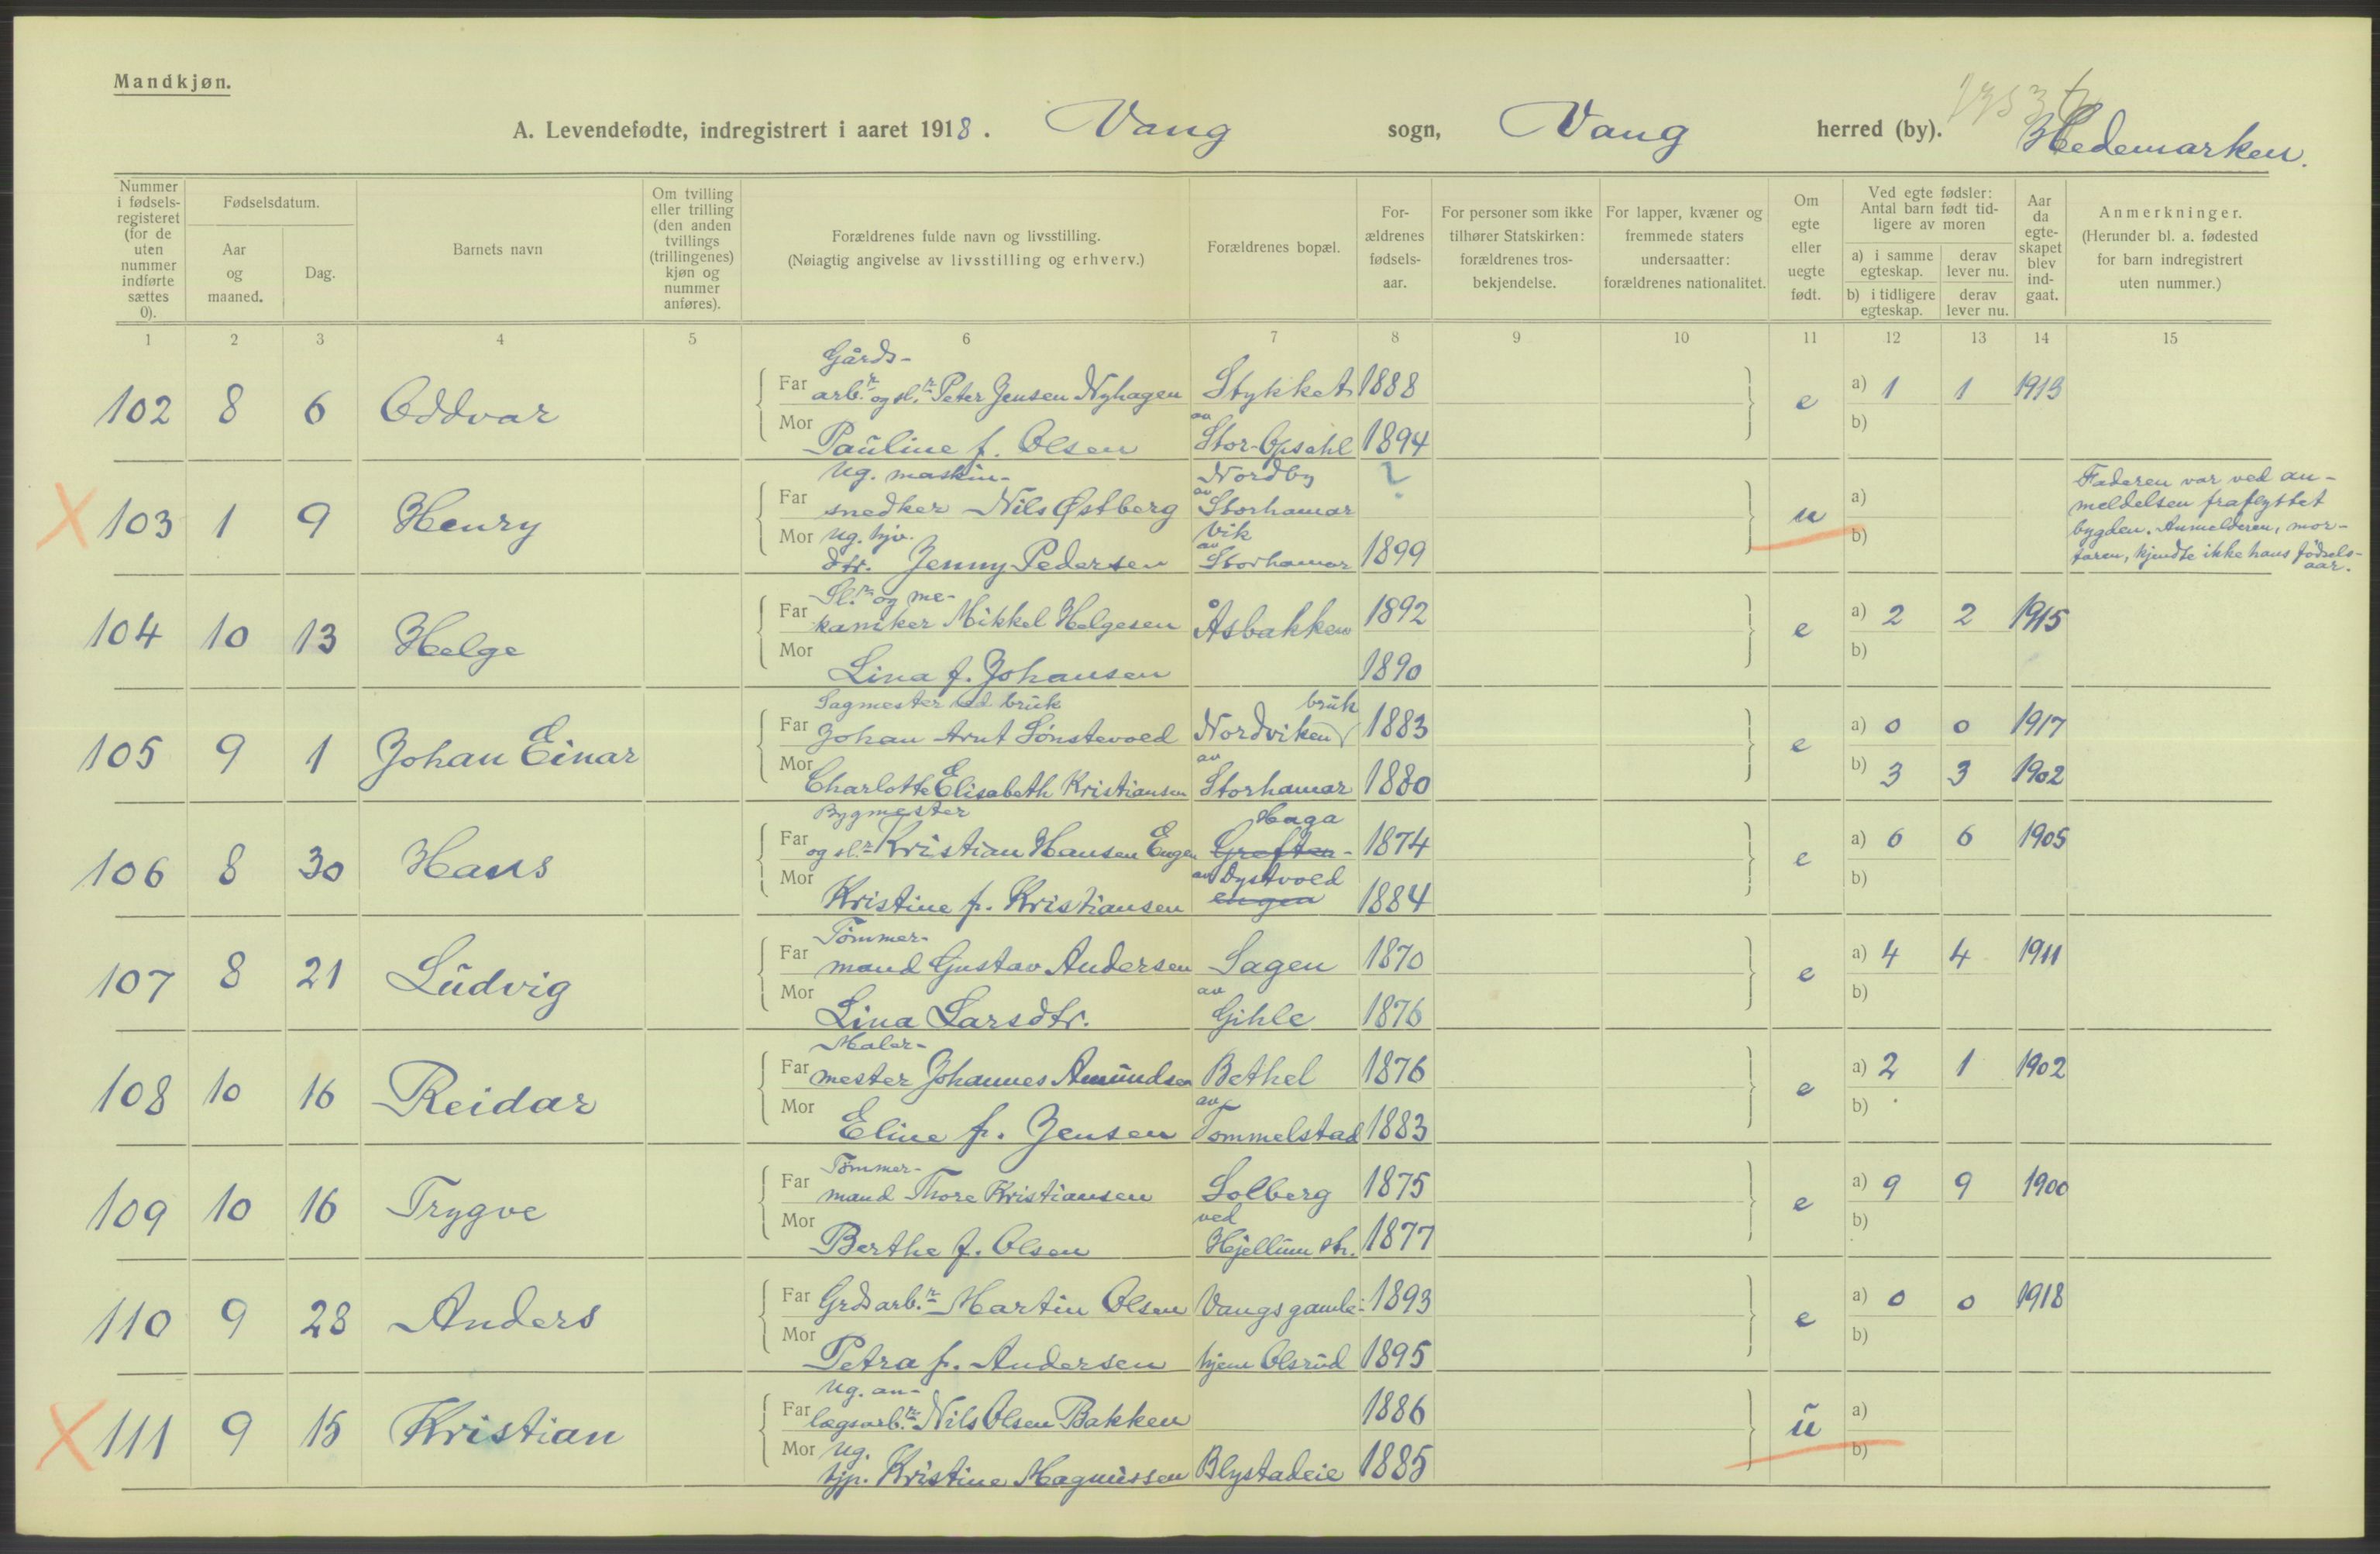 Mandkjøn.
A. Levendefødte, indregistrert i aaret 1918. Vang sogn, Vang herred (by). Hedemarken.
Nummer i fødsels-registeret (for de uten nummer indførte sættes 0).
Fødselsdatum.
Aar og maaned.
Dag.
Barnets navn
Om tvilling eller trilling (den anden tvillings (trillingenes) kjøn og nummer anføres).
Forældrenes fulde navn og livsstilling.
(Nøiagtig angivelse av livsstilling og erhverv.)
Forældrenes bopæl.
For-ældrenes fødsels-aar.
For personer som ikke tilhører Statskirken: forældrenes tros-bekjendelse.
For lapper, kvæner og fremmede staters undersaatter: forældrenes nationalitet.
Om egte eller uegte født.
Ved egte fødsler: Antal barn født tid-ligere av moren
a) i samme egteskap. derav lever nu.
b) i tidligere egteskap. derav lever nu.
Aar da egte-skapet blev ind-gaat.
Anmerkninger.
(Herunder bl. a. fødested for barn indregistrert uten nummer.)
1 2 3 4 5 6 7 8 9 10 11 12 13 14 15
Gårds-
102 8 6 Oddvar Far arb.r og sl.r Peter Jensen Nyhagen Stykket 1888 e a) 1 1 1913
Mor Pauline f. Olsen av Stor-Opsahl 1894 b)
Ug. maskin- Nordby ?
X 103 1 9 Henry Far snedker Nils Østberg av Storhamar u a)
Mor Ug. hjv. dtr. Jenny Pedersen Vik av Storhamar 1899 b)
Faderen var ved an-
meldelsen fraflyttet
bygden. Anmelderen, mor-
faren, kjendte ikke hans fødsels-
aar.
Sl.r og me-
104 10 13 Helge Far kaniker Mikkel Helgesen Åsbakken 1892 e a) 2 2 1915
Mor Lina f. Johansen 1890 b)
Sagmester ved bruk bruk
105 9 1 Johan Einar Far Johan Arnt Sønstevold Nordviken 1883 e a) 0 0 1917
Mor Charlotte Elisabeth Kristiansen av Storhamar 1880 b) 3 3 1902
Bygmester Haga
106 8 30 Hans Far og sl.r Kristian Hansen Engen Greften- 1874 e a) 6 6 1905
Mor Kristine f. Kristiansen av Dystvold engen 1884 b)
Tømmer-
107 8 21 Ludvig Far mand Gustav Andersen Sagen 1870 e a) 4 4 1911
Mor Lina Larsdtr. av Gihle 1876 b)
Maler-
108 10 16 Reidar Far mester Johannes Amundsen Bethel 1876 e a) 2 1 1902
Mor Eline f. Jensen av Tommelstad 1883 b)
Tømmer-
109 10 16 Trygve Far mand Thore Kristiansen Solberg 1875 e a) 9 9 1900
Mor Berthe f. Olsen ved Hjellum st. 1877 b)
110 9 28 Anders Far Grdsarb.r Martin Olsen Vangs gamle- 1893 e a) 0 0 1918
Mor Petra f. Andersen hjem Olsrud 1895 b)
Ug. an-
X 111 9 15 Kristian Far lægsarb.r Nils Olsen Bakken 1886 u a)
Mor Ug. hjp. Kristine Magnussen Blystadeie 1885 b)